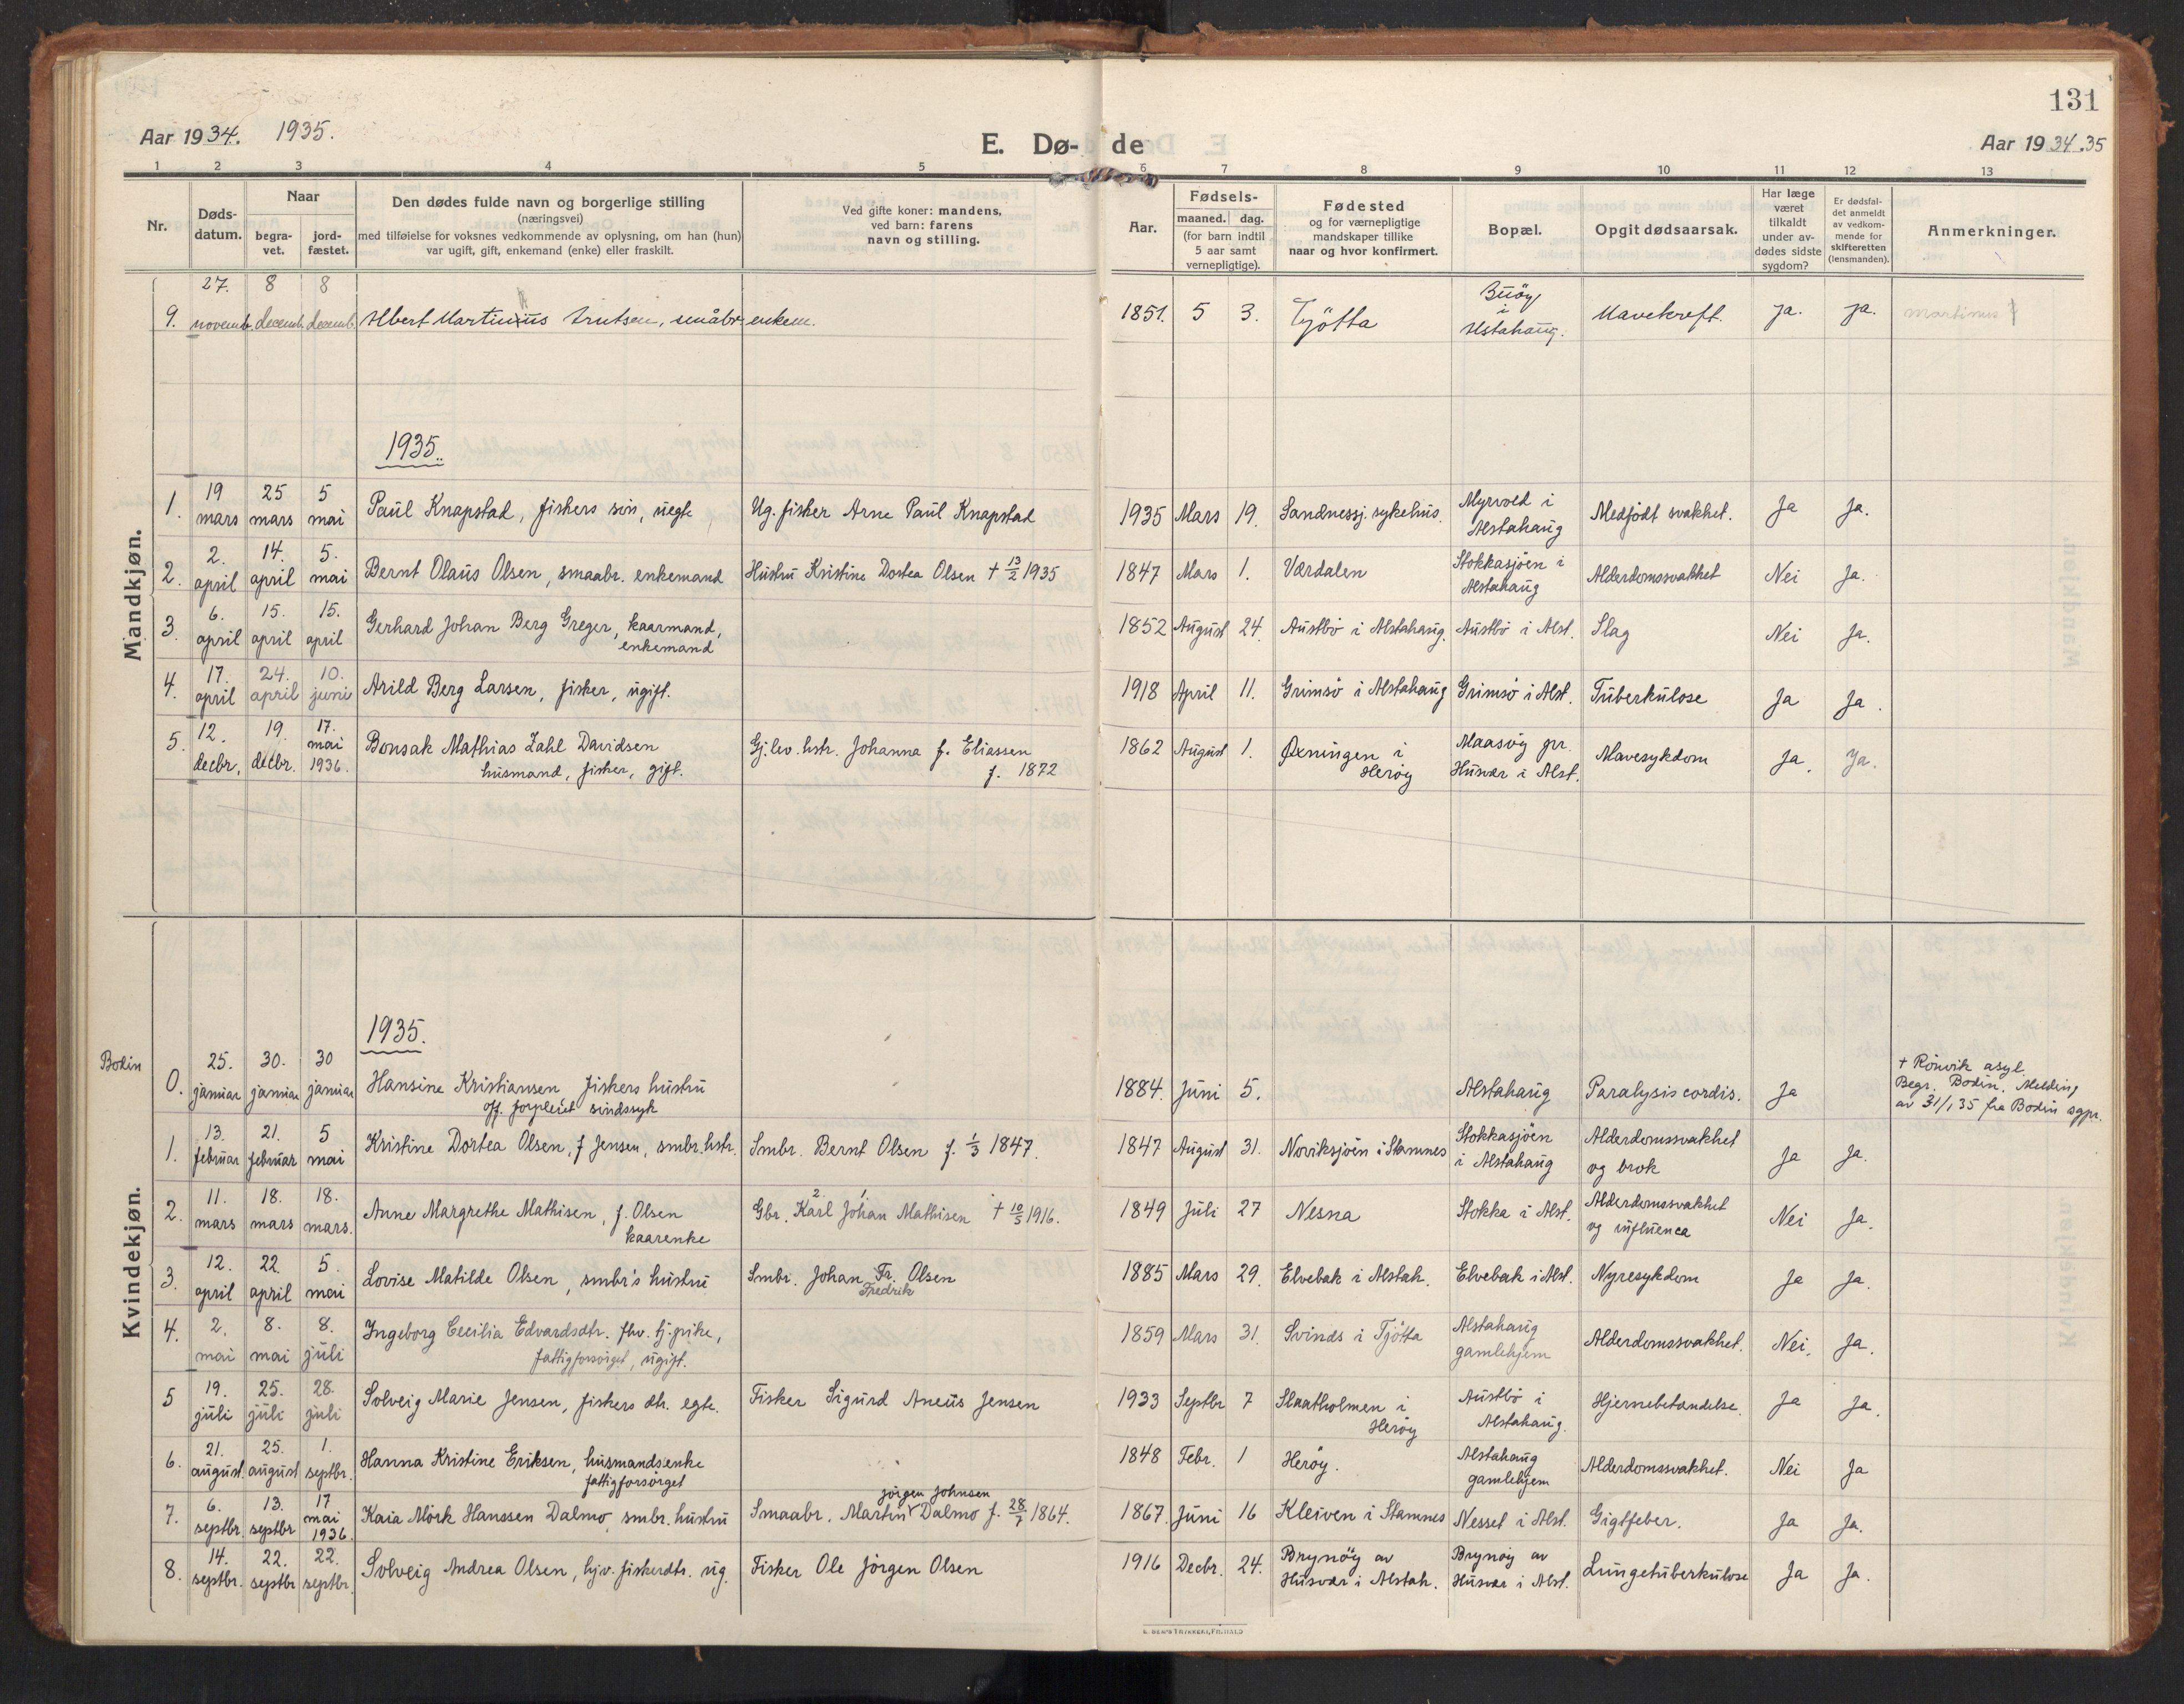 131
Aar 1934. 1935.
E. Dø- de
Aar 1934.35
1 2 3 4 5 6 7 8 9 10 11 12 13
Nr.
Døds-
datum.
Naar
begra-
vet.
jord-
fæstet.
Den dødes fulde navn og borgerlige stilling
(næringsvei)
med tilføielse for voksnes vedkommende av oplysning, om han (hun)
var ugift, gift, enkemand (enke) eller fraskilt.
Ved gifte koner: mandens,
ved barn: farens
navn og stilling.
Aar.
Fødsels-
maaned. dag.
(for barn indtil
5 aar samt
vernepligtige).
Fødested
og for værnepligtige
mandskaper tillike
naar og hvor konfirmert.
Bopæl.
Opgit dødsaarsak.
Har læge
været
tilkaldt
under av-
dødes sidste
sygdom?
Er dødsfal-
det anmeldt
av vedkom-
mende for
skifteretten
(lensmanden).
Anmerkninger.
Mandkjøn.
9. 27. novemb. 8 decemb. 8 decemb. Albert Martinius Arntsen, småbr. enkem. 1851. 5 3. Tjötta Buöy i Alstahaug. Mavekreft. Ja. Ja. Martinus
1935.
1. 19 mars 25 mars 5 mai Paul Knapstad, fiskers søn, uegte Ug. fisker Arne Paul Knapstad 1935 Mars 19. Sandnessj. sykehus. Myrvold i Alstahaug Medfødt svakhet. Ja Ja.
2. 2. april 14. april 5. mai Bernt Olaus Olsen, smaabr. enkemand Hustru Kristine Dortea Olsen + 13/2 1935 1847 Mars 1. Værdalen Stokkasjöen i Alstahaug Alderdomssvakhet Nei Ja.
3. 6. april 15. april 15. april Gerhard Johan Berg Greger, kaarmand, enkemand 1852 August 24. Austbø i Alstahaug. Austbø i Alst. Slag Nei Ja.
4. 17. april 24. april 10. juni Arild Berg Larsen, fisker, ugift. 1918 April 11. Grimsø i Alstahaug Grimsø i Alst. Tuberkulose Ja Ja.
5. 12. decbr. 19. decbr. 17. mai 1936. Bonsak Mathias Zahl Davidsen husmand, fisker, gift. Gj. lev. hstr. Johanna f. Eliassen f. 1872 1862 August 1. Øxningen i Herøy Maasvåg pr. Husvær i Alst. Mavesykdom Ja. Ja.
Kvindekjøn.
1935.
Bodin 0. 25. januar 30. januar 30 januar Hansine Kristiansen fiskers hustru off. forpleiet sindssyk 1884. Juni 5. Alstahaug Paralysis cordis. Ja + Rönvik asyl. Begr. Bodin. Melding av 31/1 35 fra Bodin sgpr.
1. 13. februar 21. februar 5 mai Kristine Dortea Olsen, f Jensen, smbr. hstr. Smbr. Bernt Olsen f. 1/3 1847. 1847 August 31. Noviksjöen i Stamnes Stokkasjöen i Alstahaug Alderdomssvakhet og brok Ja Ja.
2. 11. mars 18. mars 18. mars. Anne Margrethe Mathisen, f. Olsen kaarenke Gbr. Karl Johan Mathisen + 10/5 1916. 1849 Juli 27 Nesna Stokka i Alst. Alderdomssvakhet og influenca Nei Ja.
3. 12. april 22. april 5. mai Lovise Matilde Olsen, smbr's hustru Smbr. Johan Fr. Olsen Fredrik 1885 Mars 29. Elvebak i Alstah. Elvebak i Alst. Nyresykdom Ja Ja.
4. 2. mai 8. mai 8. juli Ingeborg Cecilia Edvardsdtr. fhv. tj.pike, fattigforsörget, ugift. 1859 Mars 31. Svinds i Tjötta Alstahaug gamlehjem Alderdomssvakhet. Nei. Ja.
5 19. juli 25. juli 28. juli Solveig Marie Jensen, fiskers dtr. egte. Fisker Sigurd Aneus Jensen 1933 Septbr 7 Slaatholmen i Herøy Austbø i Alstahaug. Hjernebetendelse. Ja Ja.
6. 21. august 25. august 1. septbr. Hanna Kristine Eriksen, husmandsenke fattigforsørget 1848 Febr. 1 Herøy. Alstahaug gamlehjem Alderdomssvakhet. Nei Ja
7. 6. septbr. 13. septbr 17 mai 1936. Kaia Mörk Hanssen Dalmo smbr. hustru Smaabr. Martin Jörgen Johnsen Dalmo f. 28/7 1864. 1867. Juni 16 Kleiven i Stamnes Nesset i Alst. Gigtfeber. Ja Ja.
8. 14. septbr. 22. septbr 22. septbr. Solveig Andrea Olsen, hjv. fiskerdtr. ug. Fisker Ole Jörgen Olsen 1916 Decbr. 24. Brynöy av Husvær i Alstah. Brynöy av Husvær i Alst. Lungetuberkulose Ja Ja.